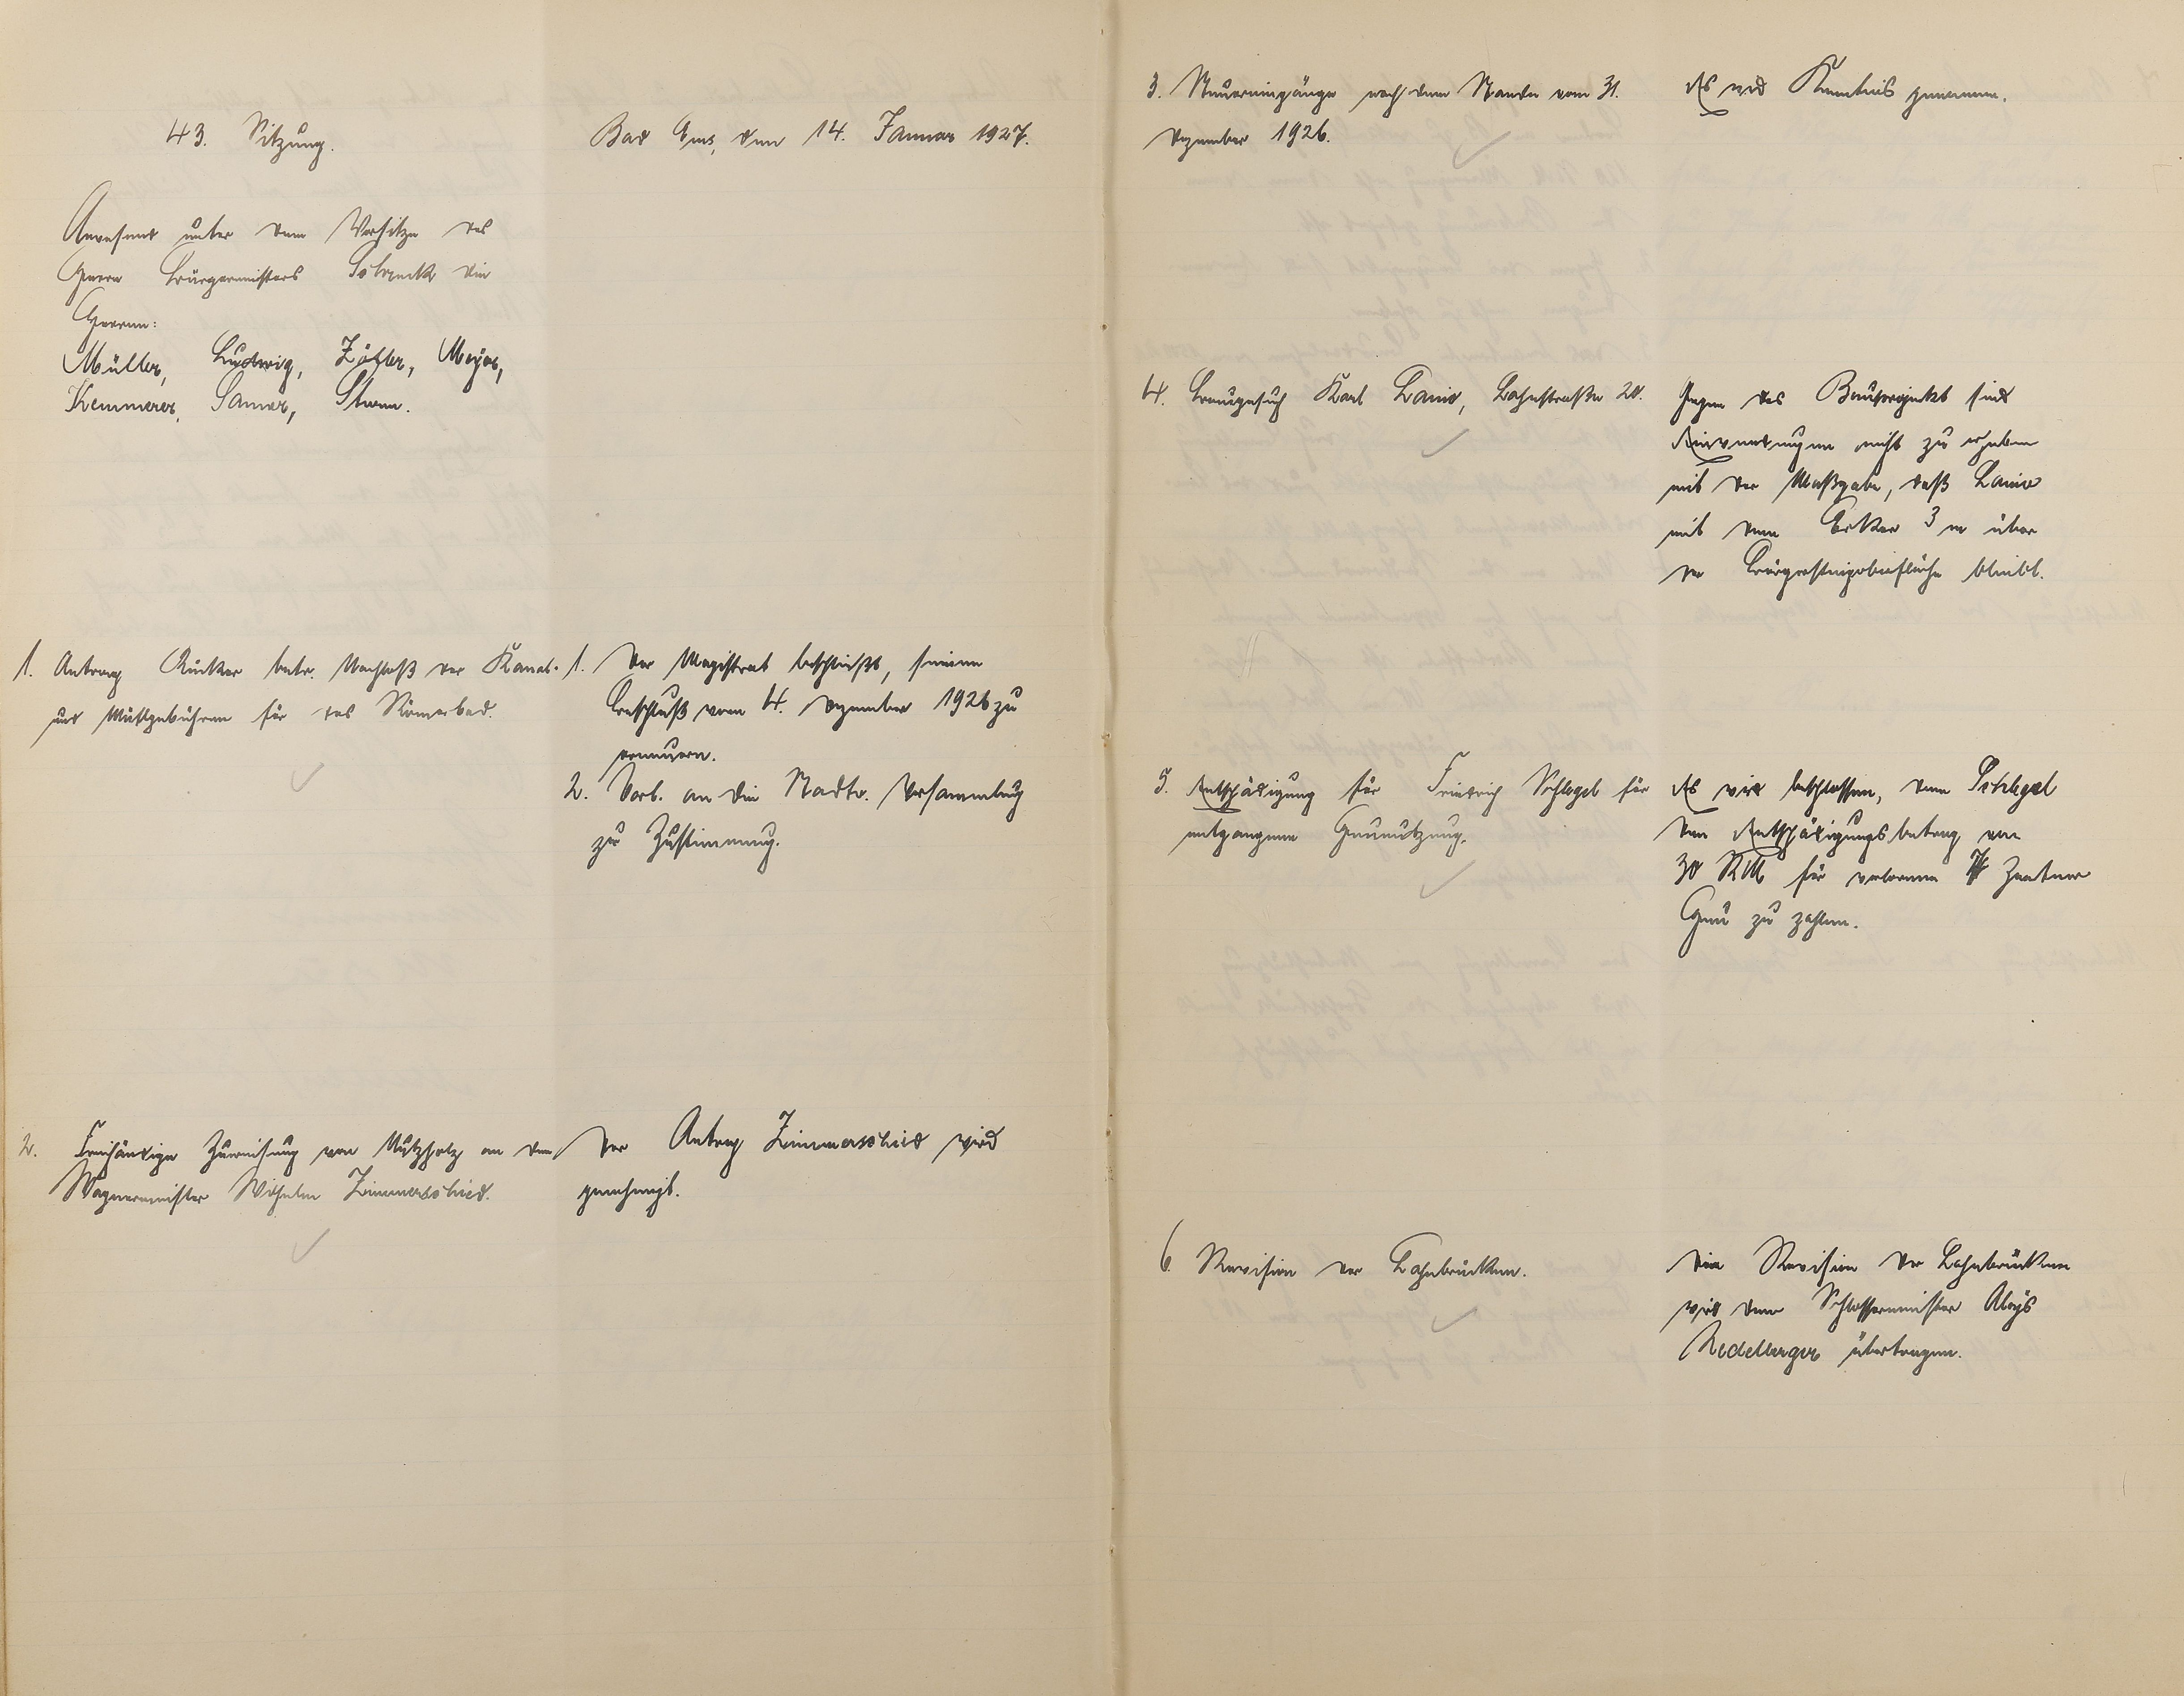 43. Sitzung.
Bad Ems, den 14. Januar 1927.
Anwesend unter dem Vorsitze des
Herrn Bürgermeisters Schreck die
Herren:
Müller, Ludwig, Zöller, Meyer,
Kemmerer, Sauer, Sturm.
1. Antrag Rücker betr. Nachlaß der Kanal-
und Müllgebühren für das Römerbad.
1. Der Magistrat beschließt, seinen
Beschluß vom 4. Dezember 1926 zu
erneuern.
2. Vorl. an die Stadtv. Versammlung
zur Zustimmung.
2. Freihändige Zuweisung von Nutzholz an den
Wagnermeister Wilhelm Zimmerschied.
Der Antrag Zimmerschied wird
genehmigt.
3. Steuereingänge nach dem Stande vom 31.
Dezember 1926.
Es wird Kenntnis genommen.
4. Baugesuch Karl Lanio, Lahnstraße 20.
Gegen das Bauprojekt sind
Einwendungen nicht zu erheben
mit der Maßgabe, daß Lanio
mit dem Erker 3 m über
der Bürgersteigoberfläche bleibt.
5. Entschädigung für Friedrich Schlegel für
entgangene Heunutzung.
Es wird beschlossen, dem Schlegel
den Entschädigungsbetrag von
30 RM für verlorene 7 Zentner
Heu zu zahlen.
6. Revision der Lahnbrücken.
Die Revision der Lahnbrücken
wird dem Schlossermeister Aloys
Nedelberger übertragen.